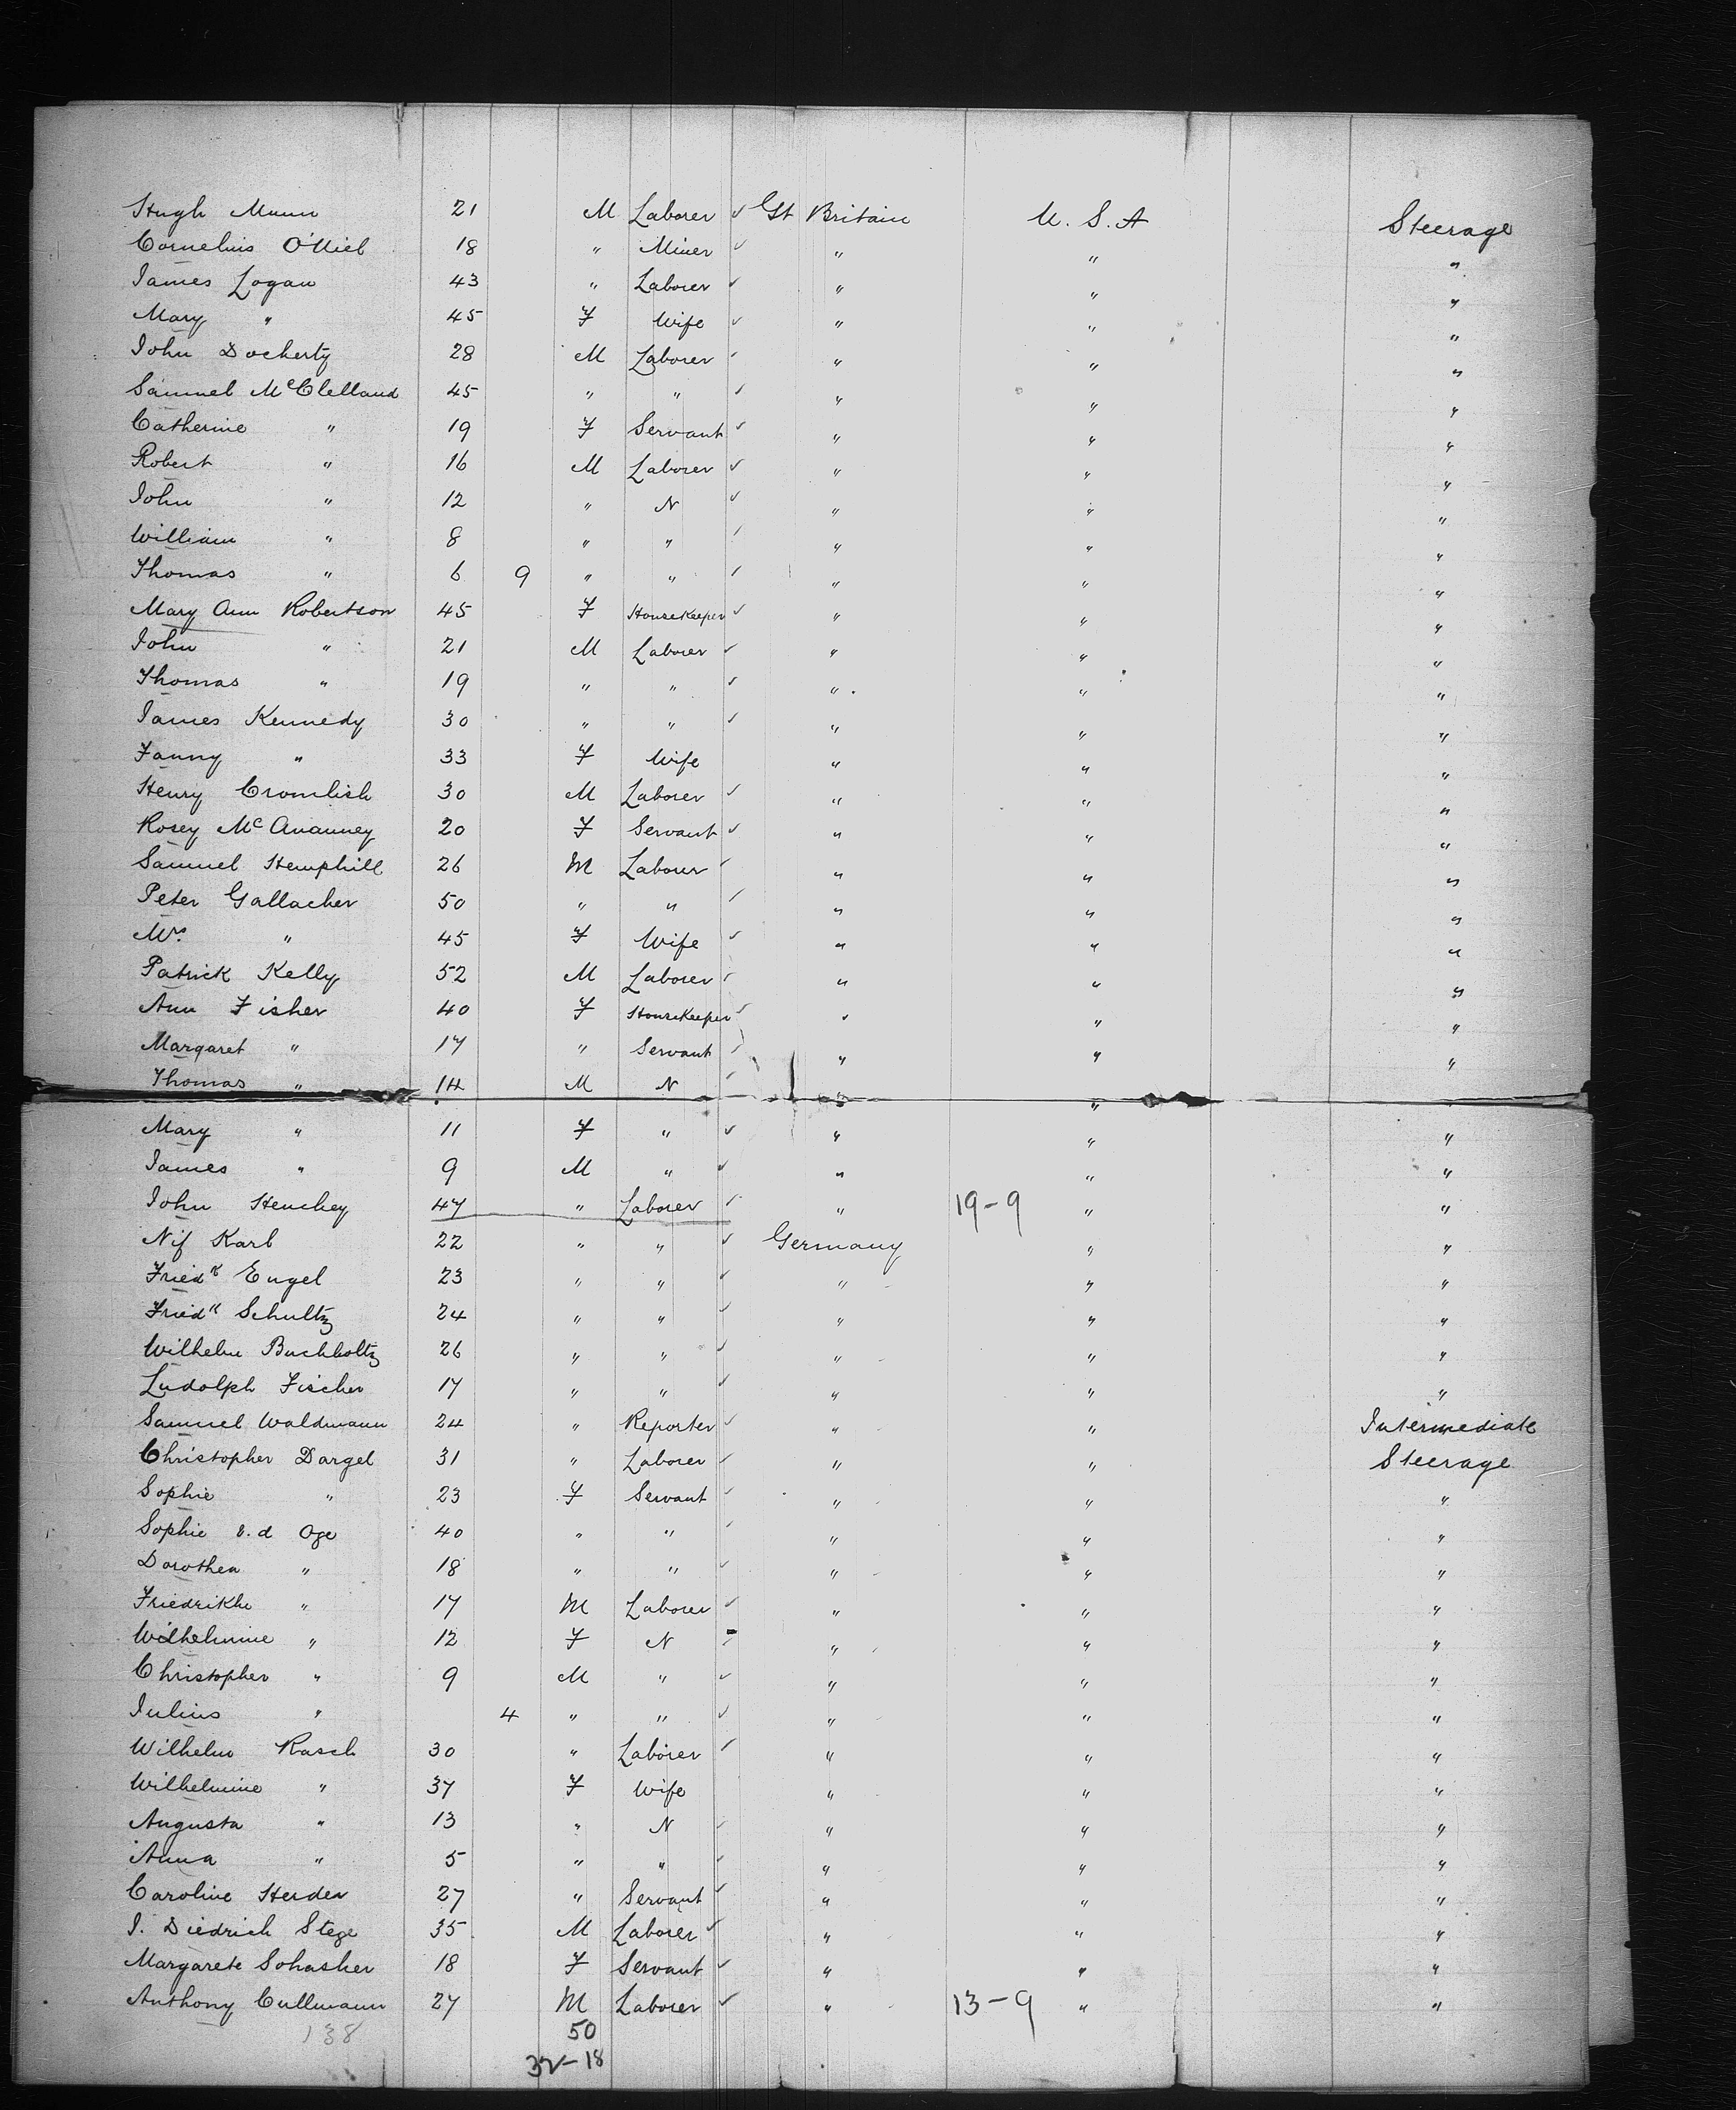 Hugh Munn 21 M Laborer ✓ Gt Britain U. S. A Steerage
Cornelius O'Niel 18 " Miner ✓ " " "
James Logan 43 " Laborer ✓ " " "
Mary " 45 F Wife ✓ " " "
John Docherty 28 M Laborer ✓ " " "
Samuel McClelland 45 " " ✓ " " "
Catherine " 19 F Servant ✓ " " "
Robert " 16 M Laborer ✓ " " "
John " 12 " N ✓ " " "
William " 8 " " ✓ " " "
Thomas " 6 9 " " ✓ " " "
Mary Ann Robertson 45 F HouseKeeper ✓ " " "
John " 21 M Laborer ✓ " " "
Thomas " 19 " " ✓ " " "
James Kennedy 30 " " ✓ " " "
Fanny " 33 F Wife " " "
Henry Cromlish 30 M Laborer ✓ " " "
Rosey McAnanney 20 F Servant ✓ " " "
Samuel Hemphill 26 M Laborer ✓ " " "
Peter Gallacher 50 " " ✓ " " "
Mrs " 45 F Wife ✓ " " "
Patrick Kelly 52 M Laborer ✓ " " "
Ann Fisher 40 F HouseKeeper ✓ " " "
Margaret " 17 " Servant ✓ " " "
Thomas " 14 M N ✓ " "
Mary " 11 F " ✓ " " "
James " 9 M " ✓ " " "
John Henchey 47 " Laborer ✓ " 19-9 " "
Nif Karl 22 " " ✓ Germany " "
Friedk Engel 23 " " ✓ " " "
Friedk Schultz 24 " " ✓ " " "
Wilhelm Buchholtz 26 " " ✓ " " "
Ludolph Fischer 17 " " ✓ " " "
Samuel Waldmann 24 " Reporter ✓ " " Intermediate
Christopher Dargel 31 " Laborer ✓ " " Steerage
Sophie " 23 F Servant ✓ " " "
Sophie v. d Oge 40 " " ✓ " " "
Dorothea " 18 " " ✓ " " "
Friedrikke " 17 M Laborer ✓ " " "
Wilhelmine " 12 F N ✓ " " "
Christopher " 9 M " ✓ " " "
Julius " 4 " " ✓ " " "
Wilhelm Rasch 30 " Laborer ✓ " " "
Wilhelmine " 37 F Wife " " "
Augusta " 13 " N ✓ " " "
Anna " 5 " " ✓ " " "
Caroline Herder 27 " Servant ✓ " " "
J. Diedrich Stege 35 M Laborer ✓ " " "
Margarete Sohasher 18 F Servant ✓ " " "
Anthony Cullmann 27 M Laborer ✓ " 13-9 " "
138 50
32-18